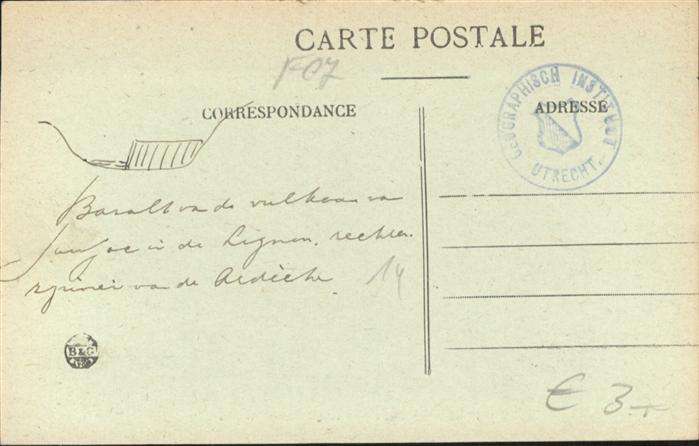 CARTE POSTALE
F07
CORRESPONDANCE
ADRESSE
GEOGRAPHISCH INSTITUUT
UTRECHT.
Basalt van de vulkaan van
Jaujac in de Lignon, rechter
zijrivier van de Ardèche
14
B&G
€ 3,-